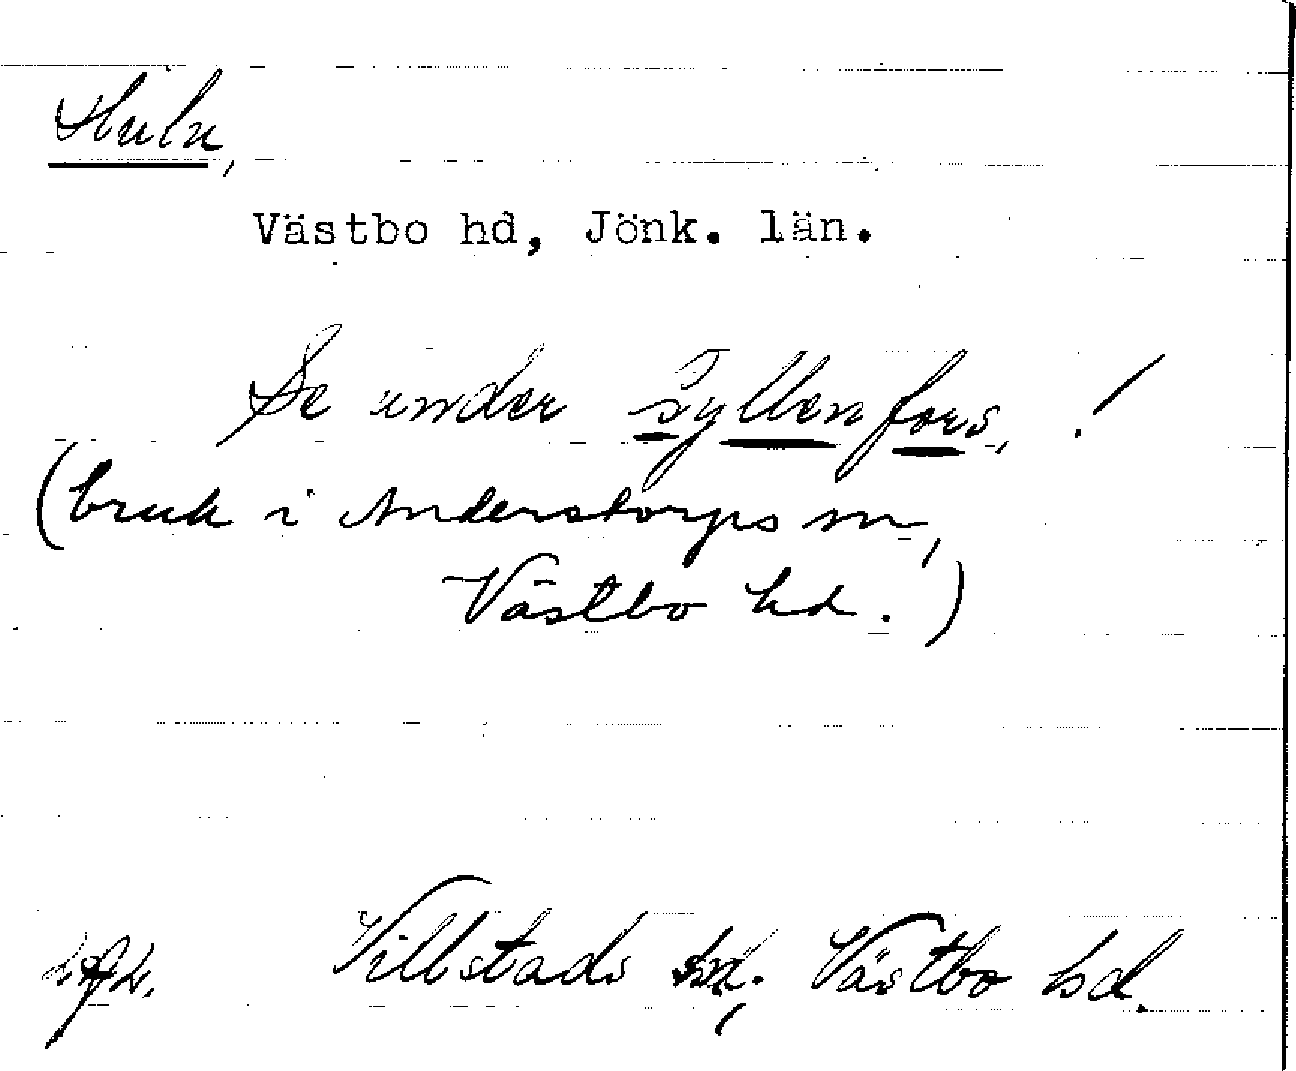 Västbo hd, Jönk. län.
Se under Gyllenfors. !
(bruk i Anderstorps sn,
Västbo hd.)
Villstads sn, Västbo hd.